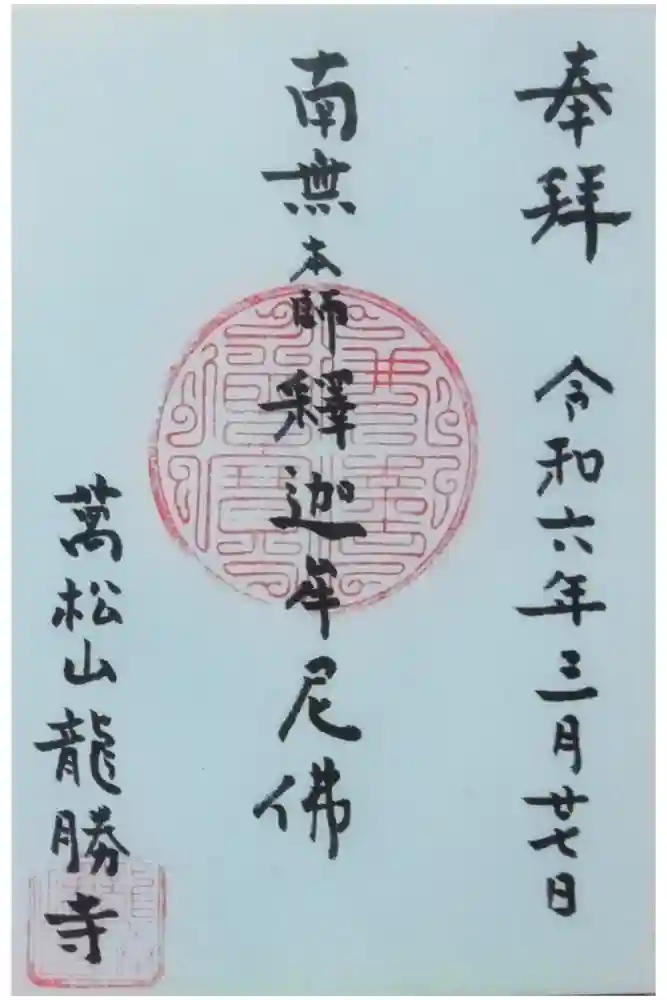 奉拜
令和六年三月廿七日
南無本師釋迦牟尼佛
萬松山龍勝寺